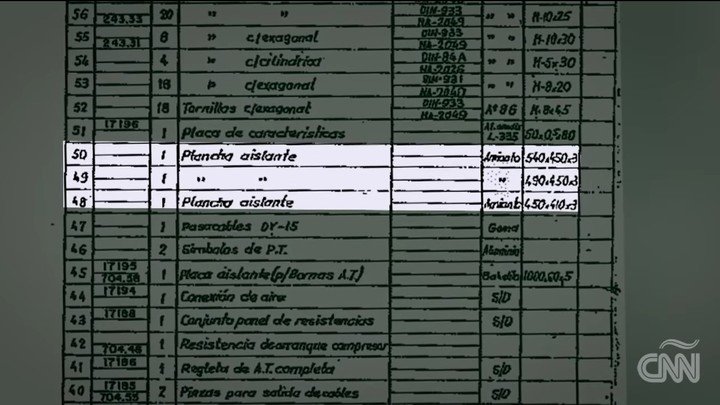 56 243.33 20 " " DIN-933 NA-2049 " " M-10x25
55 243.31 8 " c/exagonal DIN-933 NA-2049 " " M-10x30
54 4 " c/cilíndrica DIN-84A NA-2026 " " M-5x30
53 16 " c/exagonal DIN-931 " " M-8x20
52 18 Tornillos c/exagonal DIN-933 NA-2049 M-8x45
51 17196 1 Placa de características L-335
50 1 Plancha aislante Amianto 540x450x3
49 1 " " " 490x450x3
48 1 Plancha aislante Amianto 450x410x3
47 1 Pasacables DY-15 Goma
46 2 Símbolos de P.T. Aluminio
45 17195 704.58 1 Placa aislante (p/Bornas A.T.)
44 17194 1 Conexión de aire S/D
43 17188 1 Conjunto panel de resistencias S/D
42 704.48 1 Resistencia de arranque compresor
41 17186 1 Regleta de A.T. completa S/D
40 17185 704.55 2 Piezas para salida de cables S/D
CNN